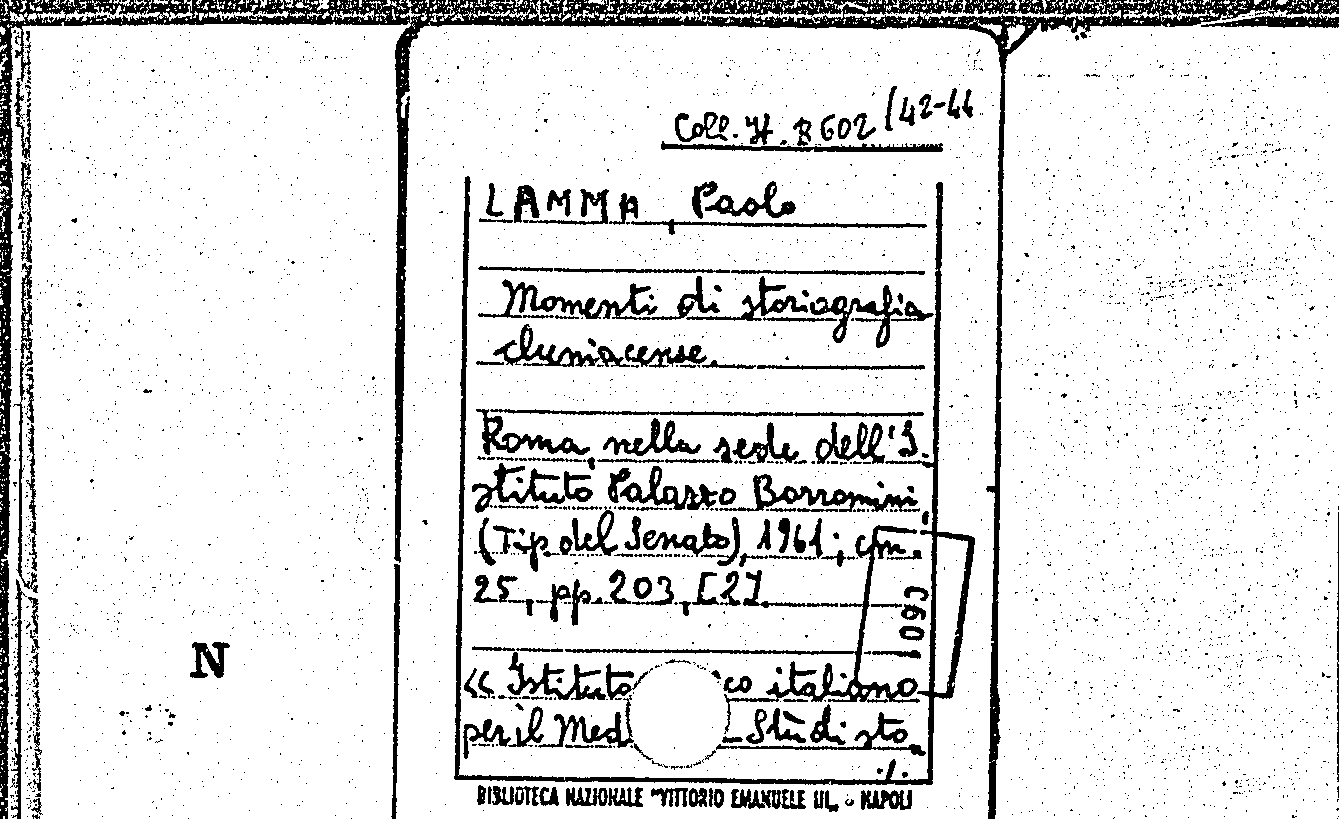 Coll. It. B 602 /42-44
LAMMA, Paolo
Momenti di storiografia
cluniacense.
Roma, nella sede dell'I-
stituto Palazzo Borromini,
(Tip. del Senato), 1961; cm.
25, pp. 203, [2].
« Istituto co italiano
per il Med Studi sto_
./.
N
BIBLIOTECA NAZIONALE "VITTORIO EMANUELE III„ - NAPOLI